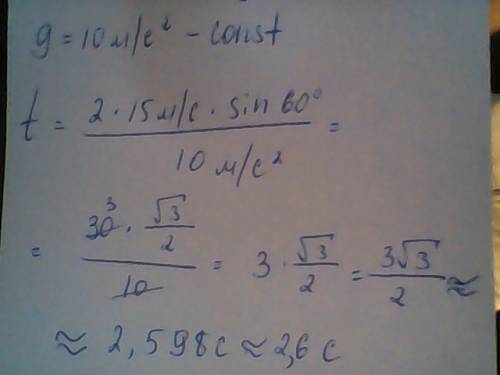 g = 10 м/с² - const
t = 2 · 15 м/с · sin 60° / 10 м/с² =
= 30 3 · √3/2 / 10 = 3 · √3/2 = 3√3/2 ≈
≈ 2,598 с ≈ 2,6 с